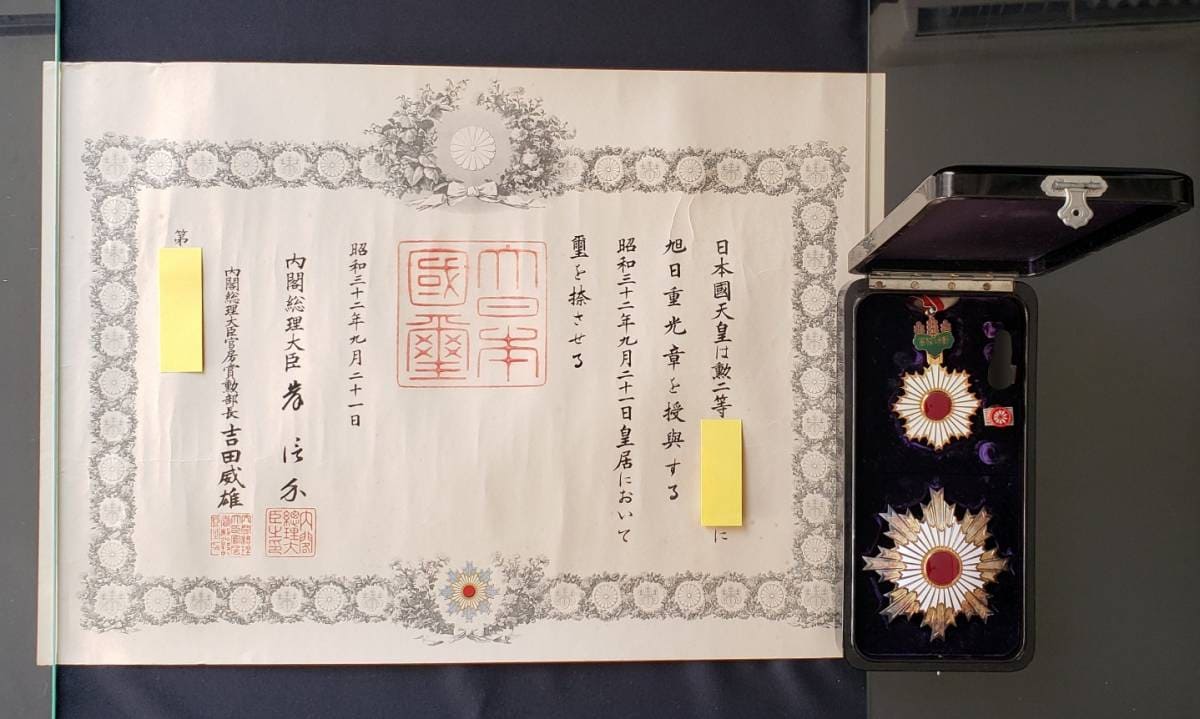 日本國天皇は勲二等に
旭日重光章を授與する
昭和三十二年九月二十一日皇居において
璽を捺させる
大日本國璽
昭和三十二年九月二十一日
内閣総理大臣 岸信介
内閣總理大臣之印
内閣総理大臣官房賞勲部長 吉田威雄
第